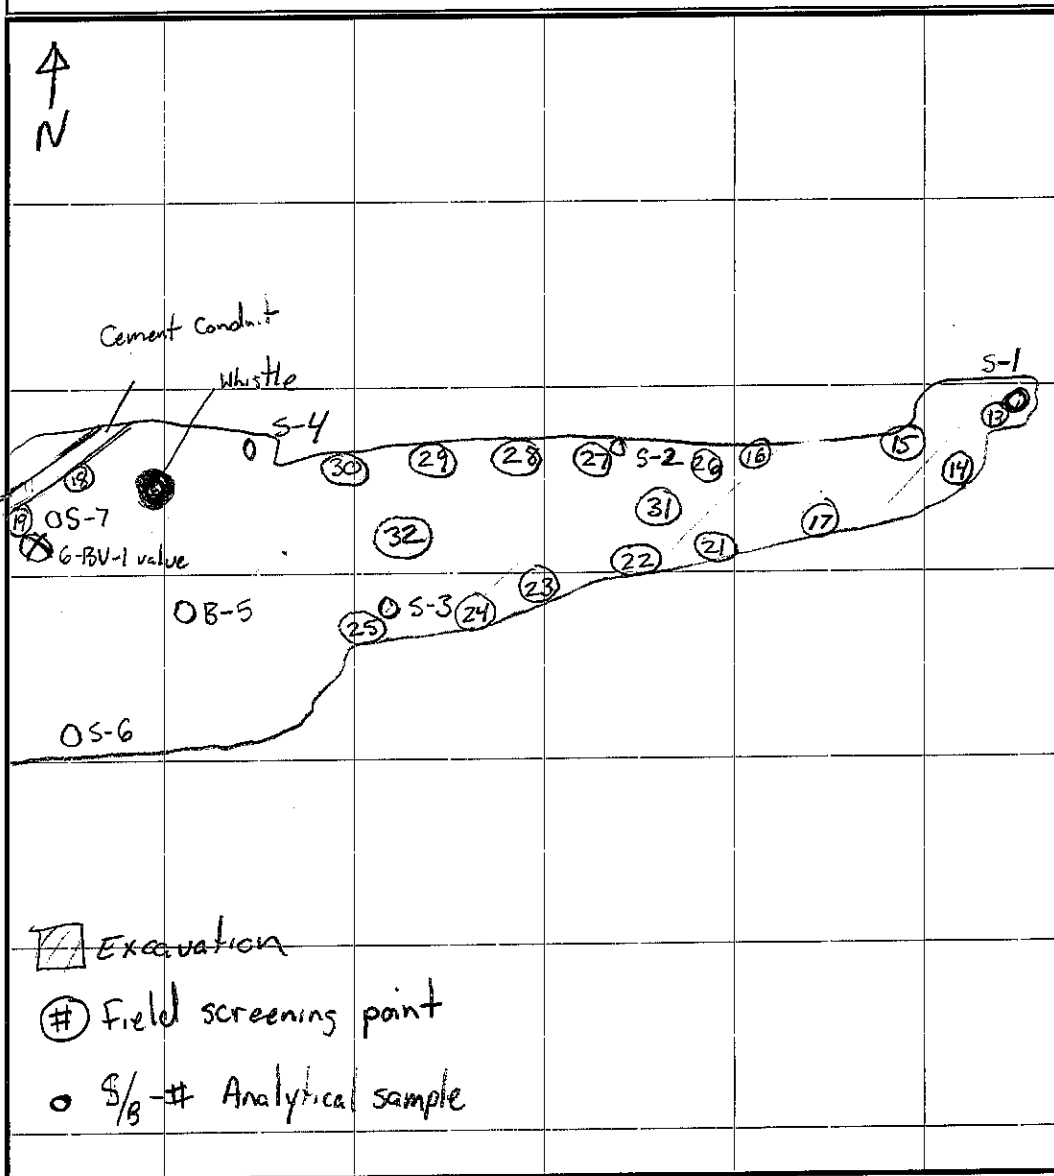 N
Cement Conduit
Whistle
S-1
S-4
13
15
30 29 28 27 S-2 26 16
14
18
19 S-7
31
17
6-BV-1 value
32
22 21
23
B-5
25 S-3 24
S-6
Excavation
# Field screening point
S/B-# Analytical sample